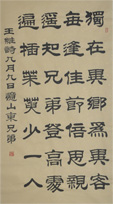 獨在異鄉為異客
每逢佳節倍思親
遙知兄弟登高處
遍插茱萸少一人
王維詩九月九日憶山東兄弟